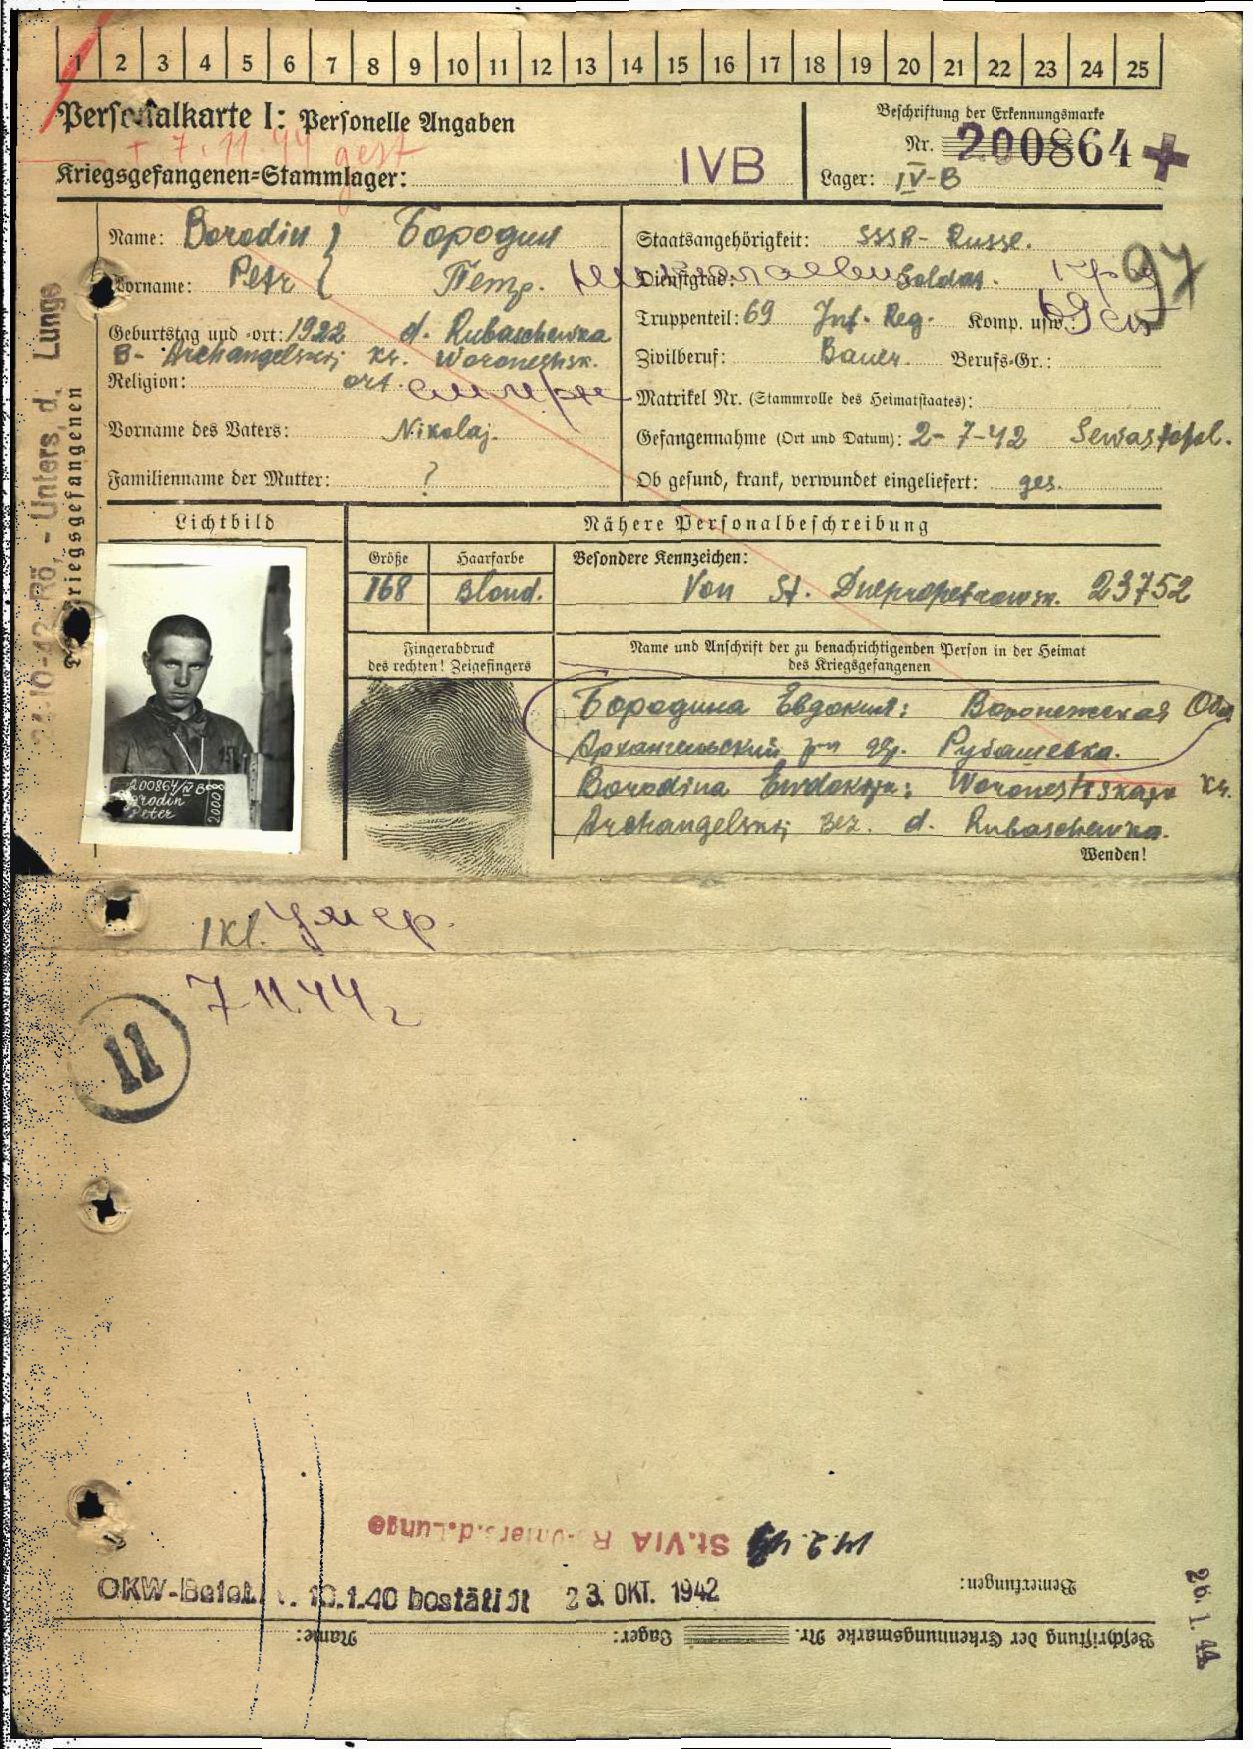 1 2 3 4 5 6 7 8 9 10 11 12 13 14 15 16 17 18 19 20 21 22 23 24 25
Personalkarte I: Personelle Angaben
+ 7.11.44 gest
Kriegsgefangenen-Stammlager: IVB
Beschriftung der Erkennungsmarke
Nr. 200864 +
Lager: IV-B
Name: Borodin } Бородин
Vorname: Petr { Петр.
Geburtstag und -ort: 1922 d. Rubaschewka
B- Archangelskij Kr. Woroneshsk.
Religion: ort.
Vorname des Vaters: Nikolaj.
Familienname der Mutter: ?
Staatsangehörigkeit: SSSR- Russe.
Dienstgrad: Soldat.
97
Truppenteil: 69 Inf. Reg. Komp. usw.:
Zivilberuf: Bauer. Berufs-Gr.:
Matrikel Nr. (Stammrolle des Heimatstaates):
Gefangennahme (Ort und Datum): 2-7-42 Sewastopol.
Ob gesund, krank, verwundet eingeliefert: ges.
Rö. - Unters. d. Lunge
Kriegsgefangenen
Lichtbild
Nähere Personalbeschreibung
Größe Haarfarbe Besondere Kennzeichen:
168 Blond. Von St. Dnepropetrowsk. 23752
Fingerabdruck
des rechten! Zeigefingers
Name und Anschrift der zu benachrichtigenden Person in der Heimat
des Kriegsgefangenen
Бородина Евдокия: Воронежская Обл
Архангельский р-н др. Рубашевка.
Borodina Ewdokija: Woroneshskaja Kr.
Archangelskij Bez. d. Rubaschewka.
Wenden!
200864/IV B
Borodin
Peter
1 Kl. Умер.
7 11.44 г
11
St.VIA Rö-Unters.d.Lunge
OKW-Befehl v. 10.1.40 bestätigt 23. OKT. 1942
Bemerkungen:
26.1.44
Beschriftung der Erkennungsmarke Nr. Lager: Name: